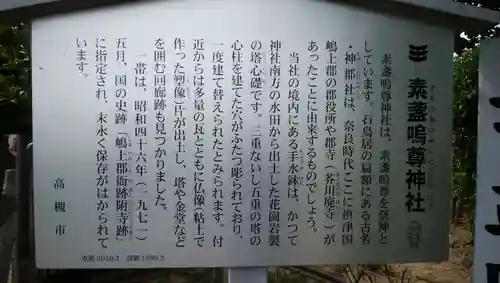 素盞嗚尊神社
素盞嗚尊神社は、素盞嗚尊を祭神と
しています。石鳥居の扁額にある古名
・神郡社は、奈良時代ここに摂津国
嶋上郡の郡役所や郡寺（芥川廃寺）が
あったことに由来するものでしょう。
当社の境内にある手水鉢は、かつて
神社南方の水田から出土した花崗岩製
の塔心礎です。三重ないし五重の塔の
心柱を建てた穴がふたつ彫られており、
一度建て替えられたとみられます。付
近からは多量の瓦とともに仏像（粘土で
作った塑像）片が出土し、塔や金堂など
を囲む回廊跡も見つかりました。
一帯は、昭和四十六年（一九七一）
五月、国の史跡「嶋上郡衙跡附寺跡」
に指定され、末永く保存がはかられて
います。
高槻市